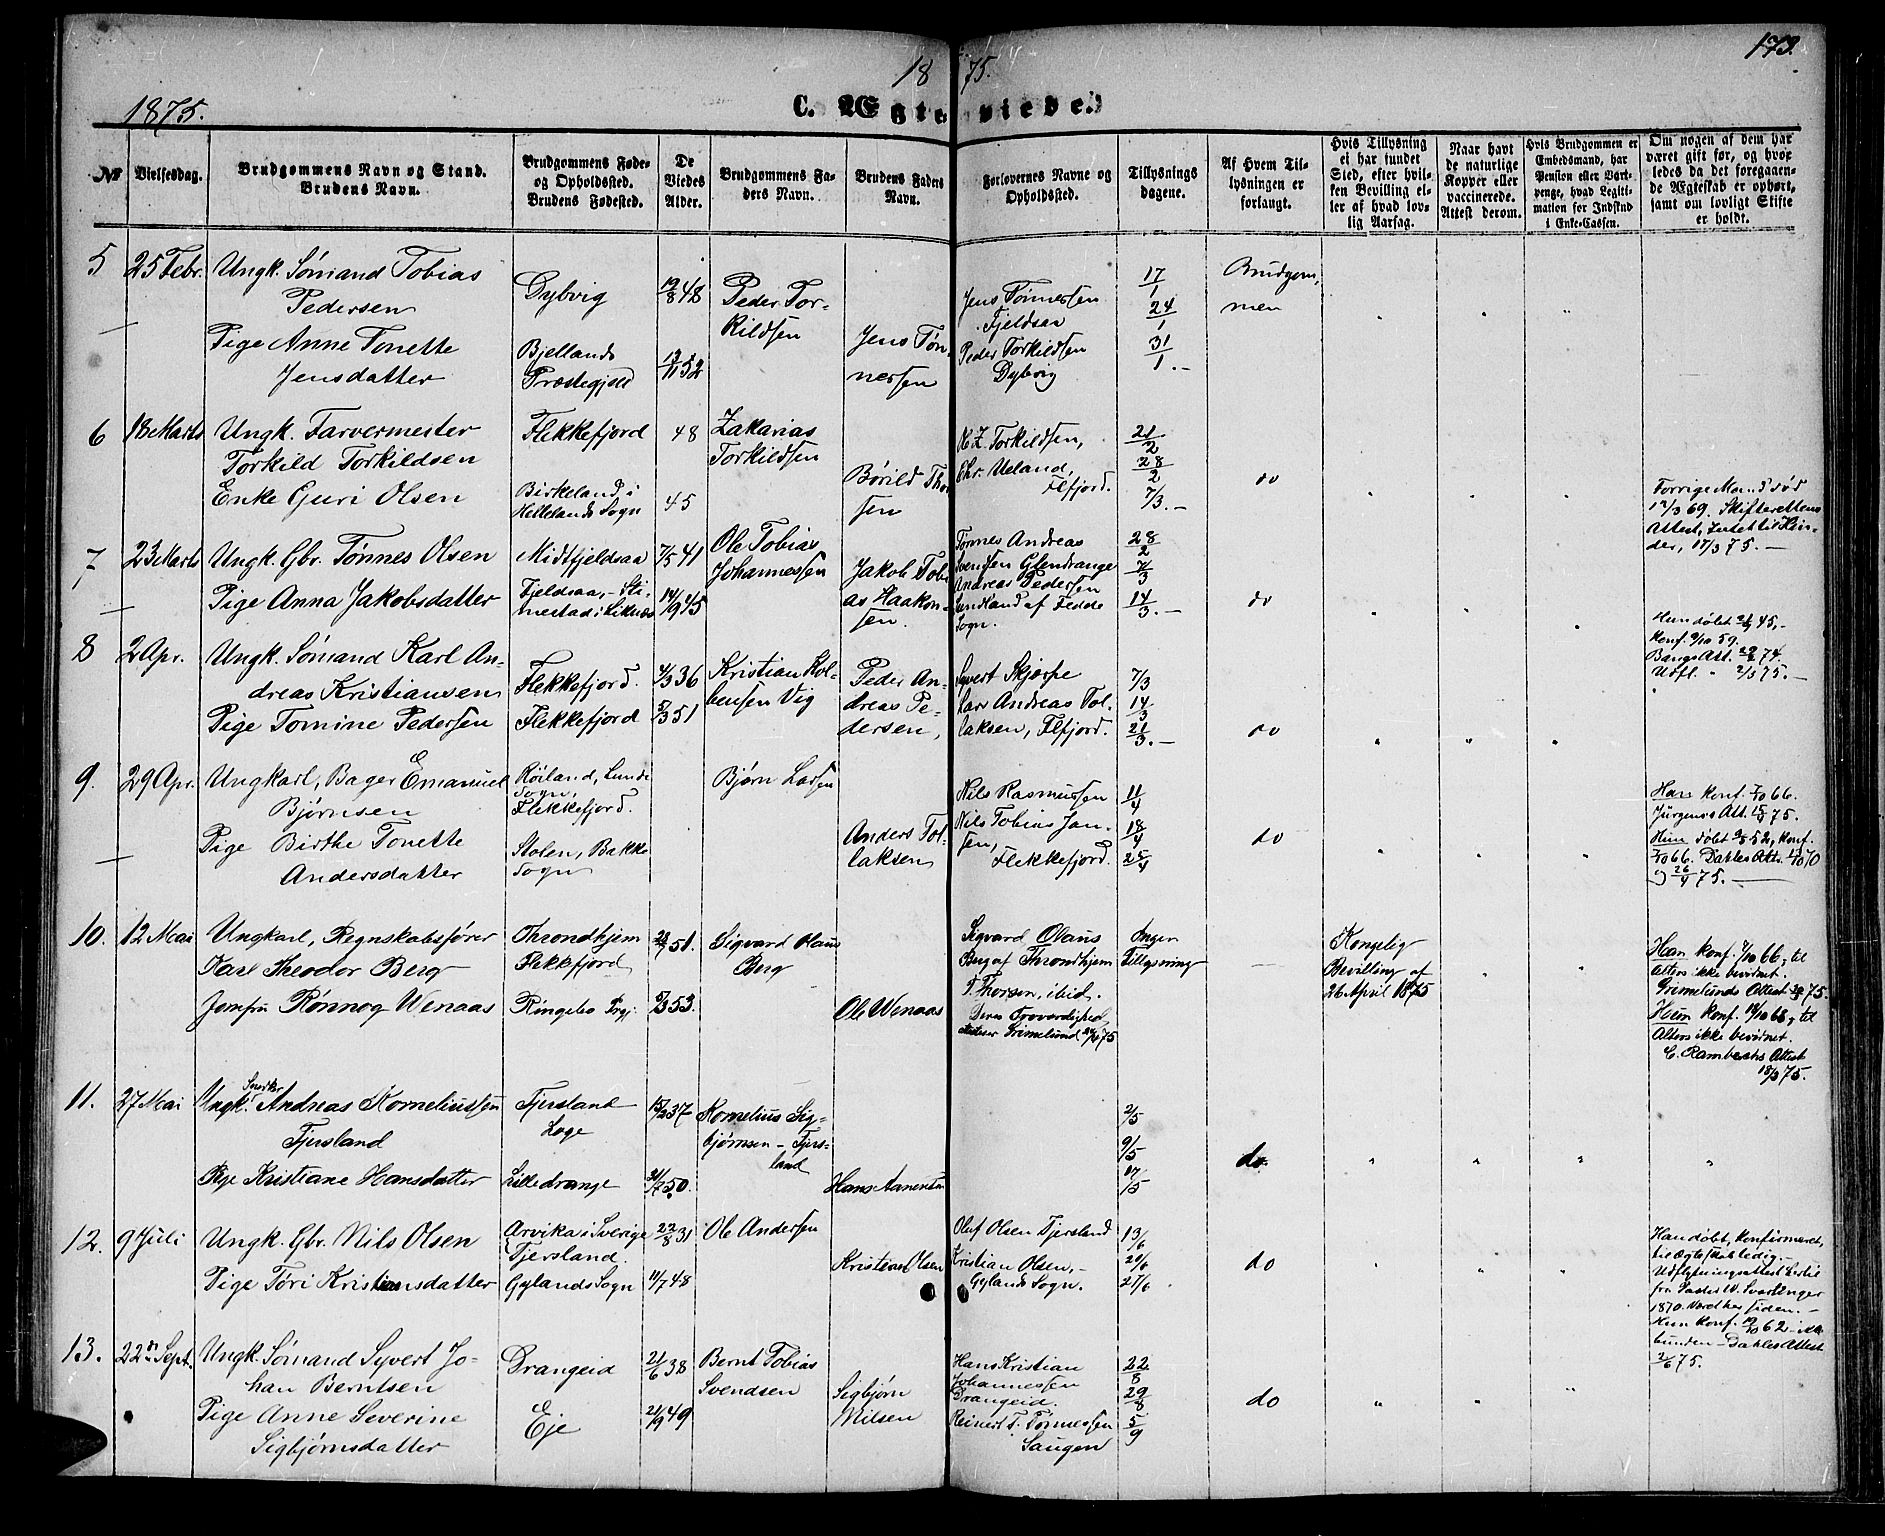 173.
18 75.
1875.
C. Ægteviede.
No
Vielsesdag.
Brudgommens Navn og Stand.
Brudens Navn.
Brudgommens Føde-
og Opholdssted.
Brudens Fødested.
De
Viedes
Alder.
Brudgommens Fa-
ders Navn.
Brudens Faders
Navn.
Forlovernes Navne og
Opholdssted.
Tillysnings
dagene.
Af Hvem Til-
lysningen er
forlangt.
Hvis Tillysning
ei har fundet
Sted, efter hvil-
ken Bevilling el-
ler af hvad lov-
lig Aarsag.
Naar havt
de naturlige
Kopper eller
vaccinerede.
Attest derom.
Hvis Brudgommen er
Embedsmand, har
Pension eller Vart-
penge, hvad Legiti-
mation for Indskud
i Enke-Cassen.
Om nogen af dem har
været gift før, og hvor-
ledes da det foregaaen-
de Ægteskab er ophørt,
samt om lovligt Skifte
er holdt.
5
25 Febr.
Ungk. Sømand Tobias
Pedersen
Pige Anne Tonette
Jensdatter
Dybvig
Bjellands
Præstegjeld
19/8 48
13/11 52
Peder Tor-
kildsen
Jens Tøn-
nessen
Jens Tønnessen
Fjeldsaa
Peder Torkildsen
Dybvig
17/1
24/1
31/1.-
Brudgom,
men
6
18 Marts
Ungk. Farvermester
Torkild Torkildsen
Enke Guri Olsen
Flekkefjord
Birkeland i
Hellelands Sogn
48
45
Zakarias
Torkildsen
Børild Thor
sen
K. Z. Torkildsen,
Chr. Ueland,
Flfjord.
21/2
28/2
7/3.-
do
Forrige Mand død
17/3 69. Skifterettens
Attest, Intet til Hin-
der, 17/3 75.-
7
23 Marts
Ungk. Gbr. Tønnes Olsen
Pige Anna Jakobsdatter
Midtfjeldsaa
Fjeldsaa, - Sti-
mestad i Liknes
7/5 41
14/9 45
Ole Tobias
Johannessen
Jakob Tobi
as Haakon-
sen.
Tønnes Andreas
Svendsen Glendrange
Andreas Pedersen
Sundland af Fedde
Sogn.
28/2
7/3
14/3.-
do
8
2 Apr.
Ungk. Sømand Karl An-
dreas Kristiansen
Pige Tomine Pedersen
Flekkefjord.
Flekkefjord
4/3 36
5/3 51
Kristian Kol-
bensen Vig
Peder An-
dreas Pe-
dersen,
Syvert Skjerpe
Lars Andreas Tol-
laksen, Flfjord.
7/3
14/3
21/3.-
do
Hun døbt 45,-
konf. 9/10 59.
Bangs Att. 74.
Udfl. " 2/3 75.-
9.
29 Apr.
Ungkarl, Bager Emanuel
Bjørnsen
Pige Birthe Tonette
Andersdatter
Røiland, Lunde
Sogn,
Flekkefjord.
Stolen, Bakke
Sogn
Bjørn Larsen
Anders Tol-
laksen
Nils Rasmussen
Nils Tobias Jan-
sen,
Flekkefjord.
11/4
18/4
25/4
do
Han konf. 7/10 66.
Jürgens Att. 75.
Hun døbt 52, konf.
7/10 66. Dahles Att. 70
og 26/4 75.-
10.
12 Mai
Ungkarl, Regnskabsfører
Karl Theodor Berg
Jomfru Rønnog Wenaas
Throndhjem
Flekkefjord
Ringebo Prgj.
51.
5/3 53.
Sigvard Olaus
Berg
Ole Wenaas
Sigvard Olaus
Berg af Throndhjem
T. Thorsen, ibid.
Deres Troværdighed
attester Grimelund 75
Ingen
Tillysning
Kongelig
Bevilling af
26 April 1875
Han konf. 7/10 66, til
Alters ikke bevidnet.
Grimelunds Attest 75.
Hun konf. 68, til
Alters ikke bevidnet.
C. Rambechs Attest
18/3 75.
11.
27 Mai
Ungk. Snedker Andreas Korneliussen
Fjersland
Pige Kristiane Hansdatter
Fjersland
Loge
Lilledrange
15/2 37
31/7 50.
Kornelius Sig-
bjørnsen - Fjers-
land
Hans Aanensen
2/5
9/5
17/5
do.
12.
9 Juli
Ungk. Gbr. Nils Olsen
Pige Tøri Kristiansdatter
Arvika i Sverige
Fjersland.
Gylands Sogn
22/8 31
11/7 48
Ole Andersen
Kristian Olsen
Oluf Olsen Fjersland
Kristian Olsen,-
Gylands Sogn.
13/6
20/6
27/6
do
Han døbt, konfirmeret,
til Ægteskab ledig,-
Udflytningsattest hertil
1870. Været her siden.-
Hun konf. 62
bunden - Dahles Attest
2/6 75.
13.
22de Sept.
Ungk. Sømand Syvert Jo-
han Berntsen
Pige Anne Severine
Sigbjørnsdatter
Drangeid
Eje
21/6 38
21/9 49
Bernt Tobias
Svendsen
Sigbjørn
Nilsen
Hans Kristian
Johannessen
Drangeid.
Reinert T. Tønnessen
Laugen
22/8
29/8
5/9
do